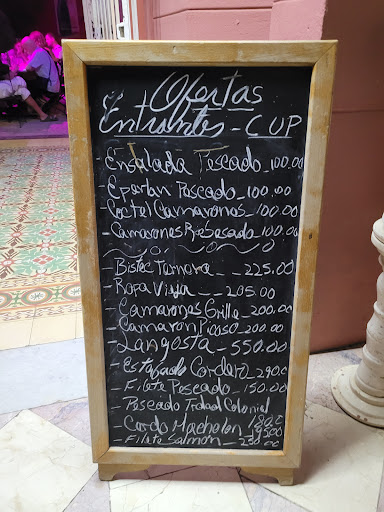 Ofertas
Entrantes - CUP
- Ensalada Pescado - 100.00
- Pescado - 100.00
- Coctel Camarones - 100.00
- Camarones Rebosado 100.00
- Bistec Ternera - - 225.00
- Ropa Vieja - - 205.00
- Camarones Grille - 200.00
- Camaron Picaso - 200.00
- Langosta - 550.00
- Estofado Cordero - 290.00
- Filete Pescado - 150.00
- Pescado Colonial
- Cordo 195.00
- Filete Salmon - 250.00